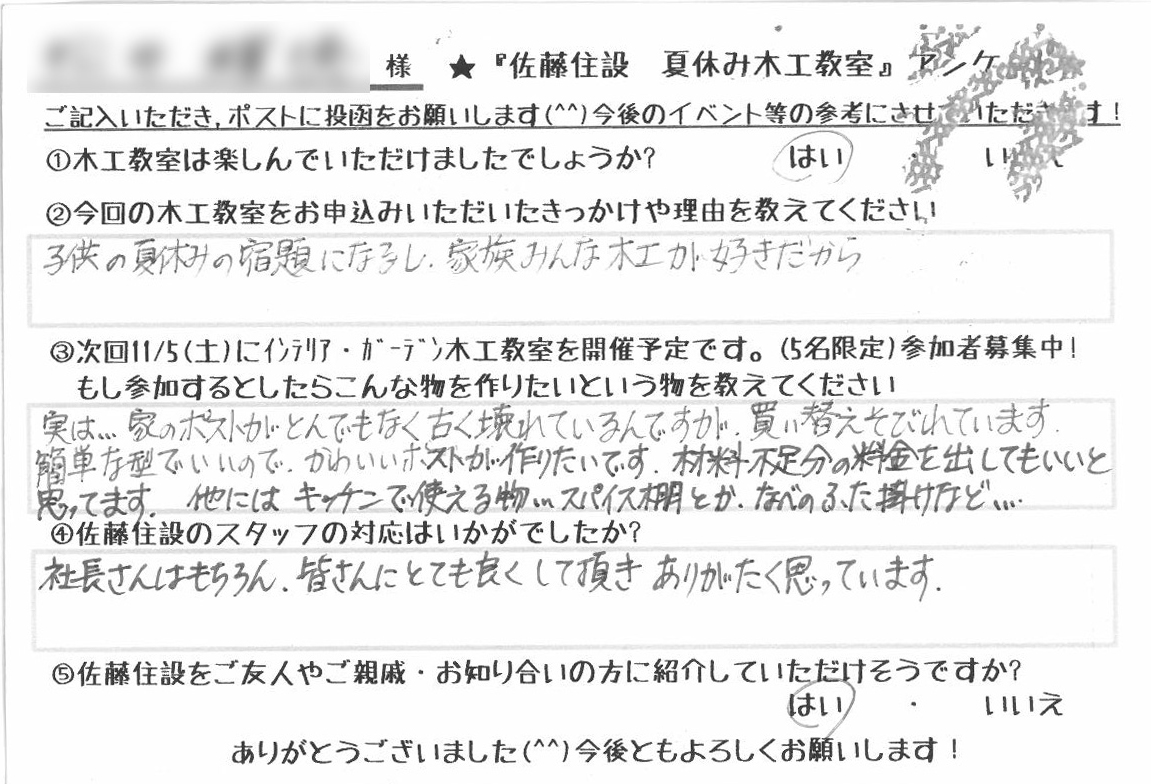 様 ★『佐藤住設 夏休み木工教室』アンケ
ご記入いただき,ポストに投函をお願いします(^^)今後のイベント等の参考にさせていただきます!
①木工教室は楽しんでいただけましたでしょうか? はい ・ いいえ
②今回の木工教室をお申込みいただいたきっかけや理由を教えてください
子供の夏休みの宿題になるし、家族みんな木工が好きだから
③次回11/5(土)にｲﾝﾃﾘｱ・ｶﾞｰﾃﾞﾝ木工教室を開催予定です。(5名限定)参加者募集中!
もし参加するとしたらこんな物を作りたいという物を教えてください
実は… 家のポストがとんでもなく古く壊れているんですが、買い替えそびれています。
簡単な型でいいので、かわいいポストが作りたいです。材料不足分の料金を出してもいいと
思ってます。 他には キッチンで使える物… スパイス棚とか、なべのふた掛けなど….
④佐藤住設のスタッフの対応はいかがでしたか?
社長さんはもちろん、皆さんにとても良くして頂き ありがたく思っています。
⑤佐藤住設をご友人やご親戚・お知り合いの方に紹介していただけそうですか?
はい ・ いいえ
ありがとうございました(^^)今後ともよろしくお願いします!